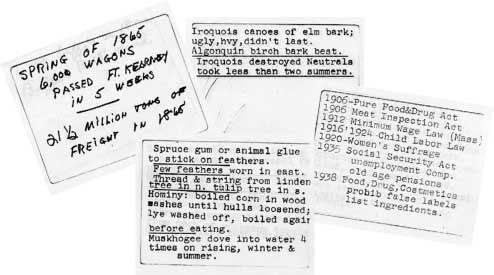 SPRING OF 1865
6,000 WAGONS
PASSED FT. KEARNEY
IN 5 WEEKS
21½ MILLION TONS OF
FREIGHT IN 1865
Iroquois canoes of elm bark;
ugly,hvy,didn't last.
Algonquin birch bark best.
Iroquois destroyed Neutrals
took less than two summers.
1906-Pure Food&Drug Act
1906 Meat Inspection Act
1912 Minimum Wage Law (Mass)
1916'1924 Child Labor Law
1920-Women's Suffrage
1935 Social Security Act
unemployment Comp.
old age pensions
1938 Food,Drug,Cosmetics
prohib false labels
list ingredients.
Spruce gum or animal glue
to stick on feathers.
Few feathers worn in east.
Thread & string from linden
tree in n. tulip tree in s.
Hominy: boiled corn in wood
ashes until hulls loosened;
lye washed off, boiled again
before eating.
Muskhogee dove into water 4
times on rising, winter &
summer.